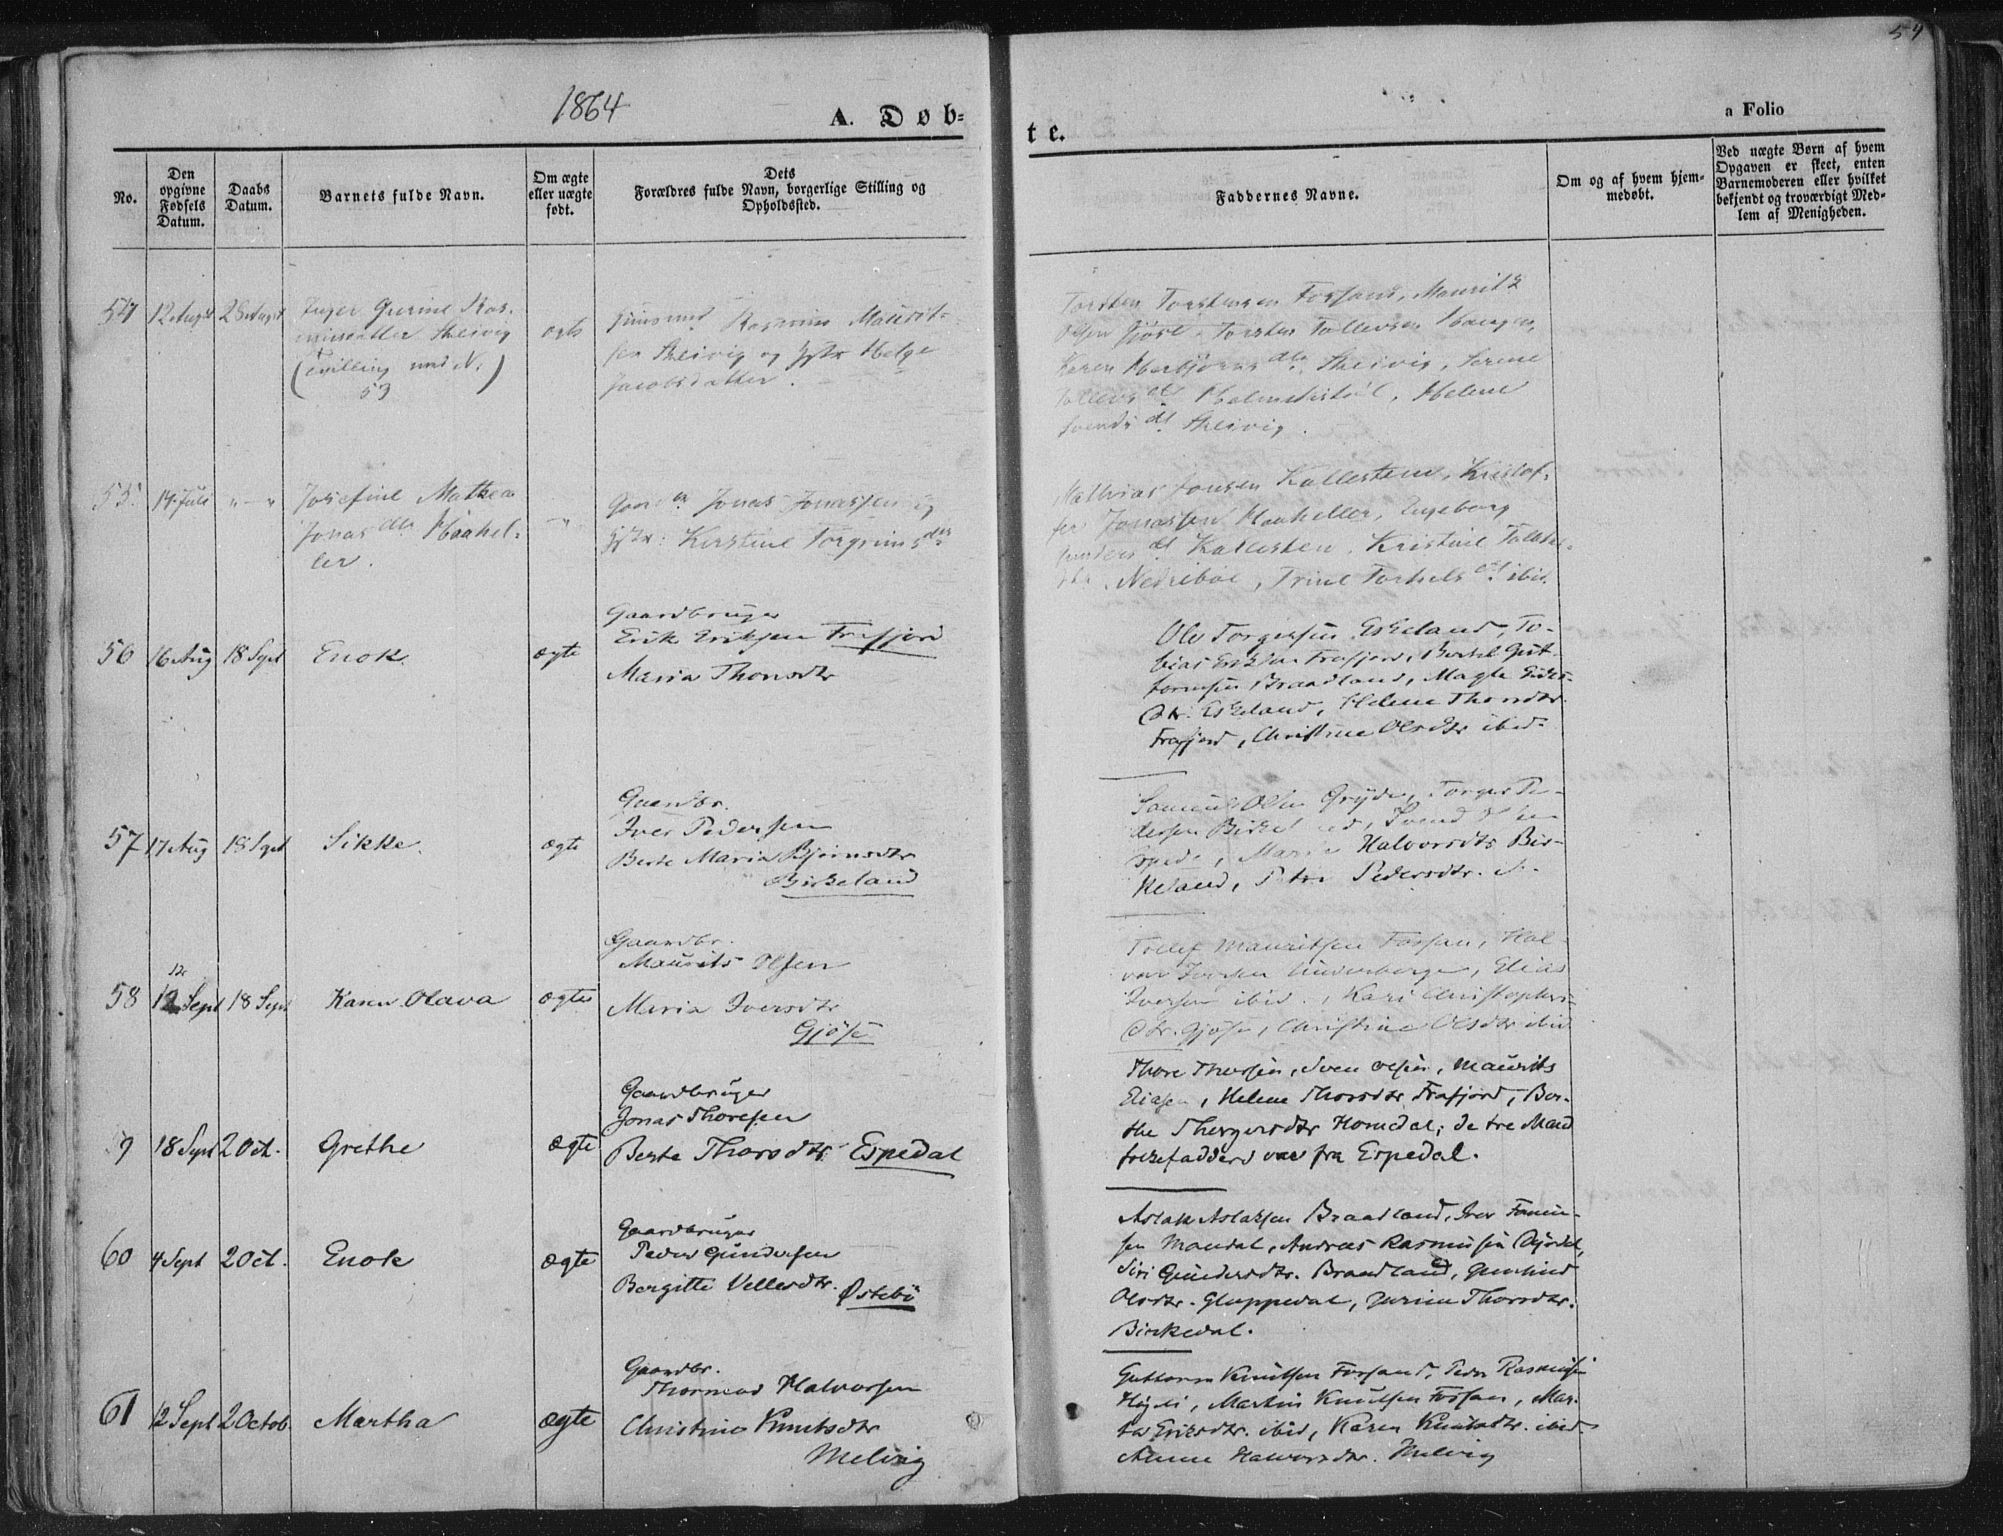 54
1864
A. Døb-
te.
a Folio
No.
Den opgivne Fødsels Datum.
Daabs Datum.
Barnets fulde Navn.
Om ægte eller uægte født.
Dets Forældres fulde Navn, borgerlige Stilling og Opholdssted.
Faddernes Navne.
Om og af hvem hjemmedøbt.
Ved uægte Børn af hvem Opgaven er skeet, enten Barnemoderen eller hvilket bekjendt og troværdigt Medlem af Menigheden.
54 12 August 28 August
Inger Gurine Ras-
musdatter Skeivig
(Tvilling med N.
53)
ægte
Rasmus Maurit-
sen Skeivig og Helge
Jacobsdatter.
Torsten Torstensen Fossand, Mauritz
Olsen Gjøse, Torsten Tollevsen Haugen,
Karen Herbjørns dtr. Skeivig, Serene
Tollevs dt Holmastøl, Helene
Svends dt. Skeivig.
55. 14 Juli " — "
Josefine Mathea
Jonas dtr Haahel-
ler.
"
Jonas Jonassen og
Kirstine Torgrims dtr
Mathias Jonsen Kallesten, Kristof-
fer Jonassen Haaheller, Ingeborg
Gunders dt Kallesten, Kristine
Nedrebøe, Trine Torkels dt. ibid.
56 16 Aug 18 Sept
Enok
ægte
Gaardbruger
Erik Eriksen Frafjord
Maria Thorsdtr
Ole Torgersen Eskeland, To-
bias Eriksen Frafjord, Bertel Gut-
tormsen Braadland, Magle
dtr. Eskeland, Helene Thorsdtr.
Frafjord, Christine Olsdtr ibid.
57 17 Aug 18 Sept
Sikke
ægte
Gaardbr.
Iver Pedersen
Berte Maria Bjørnsdtr
Birkeland
Samuel Olsen Gryde, Torger Pe-
dersen Birkeland, Svend
Marie Halvorsdtr Bir-
keland, Pedersdtr.
58 12 Sept 18 Sept
Karen Olava
ægte
Gaardbr.
Maurits Olsen
Maria Iversdtr
Gjøse
Tollef Mauritsen Fossan, Hal-
vor Iversen Underberge, Elias
Iversen ibid., Kari Christophers-
dtr. Gjøse, Christine Olsdtr ibid
9 18 Sept 2 Oct.
Grethe
ægte
Gaardbruger
Jonas Thoresen
Berte Thorsdtr. Espedal
Thore Thorsen, Sven Olsen, Maurits
Eliasen, Helene Thorsdtr Frafjord, Ber-
the Thorgersdtr Homdal; de tre Mand
folkefaddere var fra Espedal.
60 4 Sept 2 Oct.
Enok
ægte
Gaardbruger
Peder Gundersen
Bergitte Vellesdtr. Østebø
Aslak Aslaksen Braadland, Iver Tønne-
sen Maudal, Andreas Rasmussen
Siri Gundersdtr. Braadland, Gunhild
Olsdtr. Gloppedal, Gurine Thorsdtr.
Birkedal.
61 12 Sept 2 Octob.
Martha
ægte
Gaardbr.
Thormod Halvorsen
Christine Knutsdtr
Melvig
Guttorm Knutsen Fossand, Peder Rasmusen
Martin Knutsen Fossan, Mar-
ta Eriksdtr. ibid, Karen Knutsdtr. ibid
Anne Halvorsdtr. Melvig